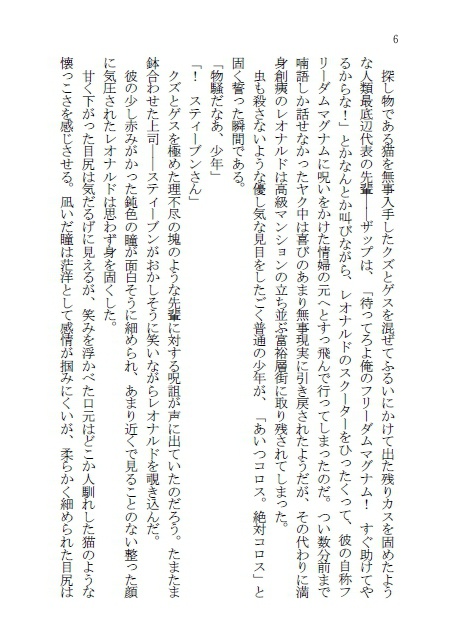 6
　探し物である猫を無事入手したクズとゲスを混ぜてふるいにかけて出た残りカスを固めたよう
な人類最底辺代表の先輩――ザップは、「待ってろよ俺のフリーダムマグナム！　すぐ助けてや
るからな！」とかなんとか叫びながら、レオナルドのスクーターをひったくって、彼の自称フ
リーダムマグナムに呪いをかけた情婦の元へとすっ飛んで行ってしまったのだ。つい数分前まで
喃語しか話せなかったヤク中は喜びのあまり無事現実に引き戻されたようだが、その代わりに満
身創痍のレオナルドは高級マンションの立ち並ぶ富裕層街に取り残されてしまった。
　虫も殺さないような優し気な見目をしたごく普通の少年が、「あいつコロス。絶対コロス」と
固く誓った瞬間である。
「物騒だなあ、少年」
「！　スティーブンさん」
　クズとゲスを極めた理不尽の塊のような先輩に対する呪詛が声に出ていたのだろう。たまたま
鉢合わせた上司――スティーブンがおかしそうに笑いながらレオナルドを覗き込んだ。
　彼の少し赤みがかった鈍色の瞳が面白そうに細められ、あまり近くで見ることのない整った顔
に気圧されたレオナルドは思わず身を固くした。
　甘く下がった目尻は気だるげに見えるが、笑みを浮かべた口元はどこか人馴れした猫のような
懐っこさを感じさせる。凪いだ瞳は茫洋として感情が掴みにくいが、柔らかく細められた目尻は